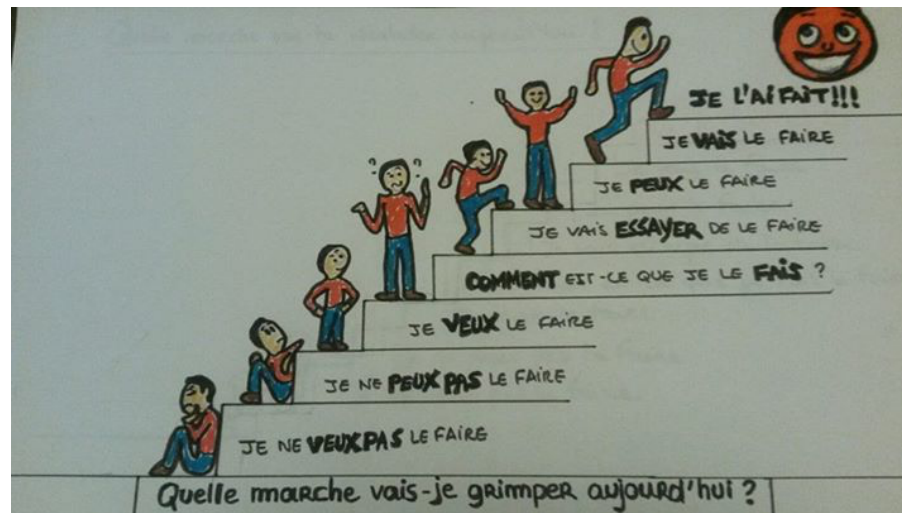 JE L'AI FAIT!!!
JE VAIS LE FAIRE
JE PEUX LE FAIRE
JE VAIS ESSAYER DE LE FAIRE
COMMENT EST-CE QUE JE LE FAIS ?
JE VEUX LE FAIRE
JE NE PEUX PAS LE FAIRE
JE NE VEUX PAS LE FAIRE
Quelle marche vais-je grimper aujourd'hui ?